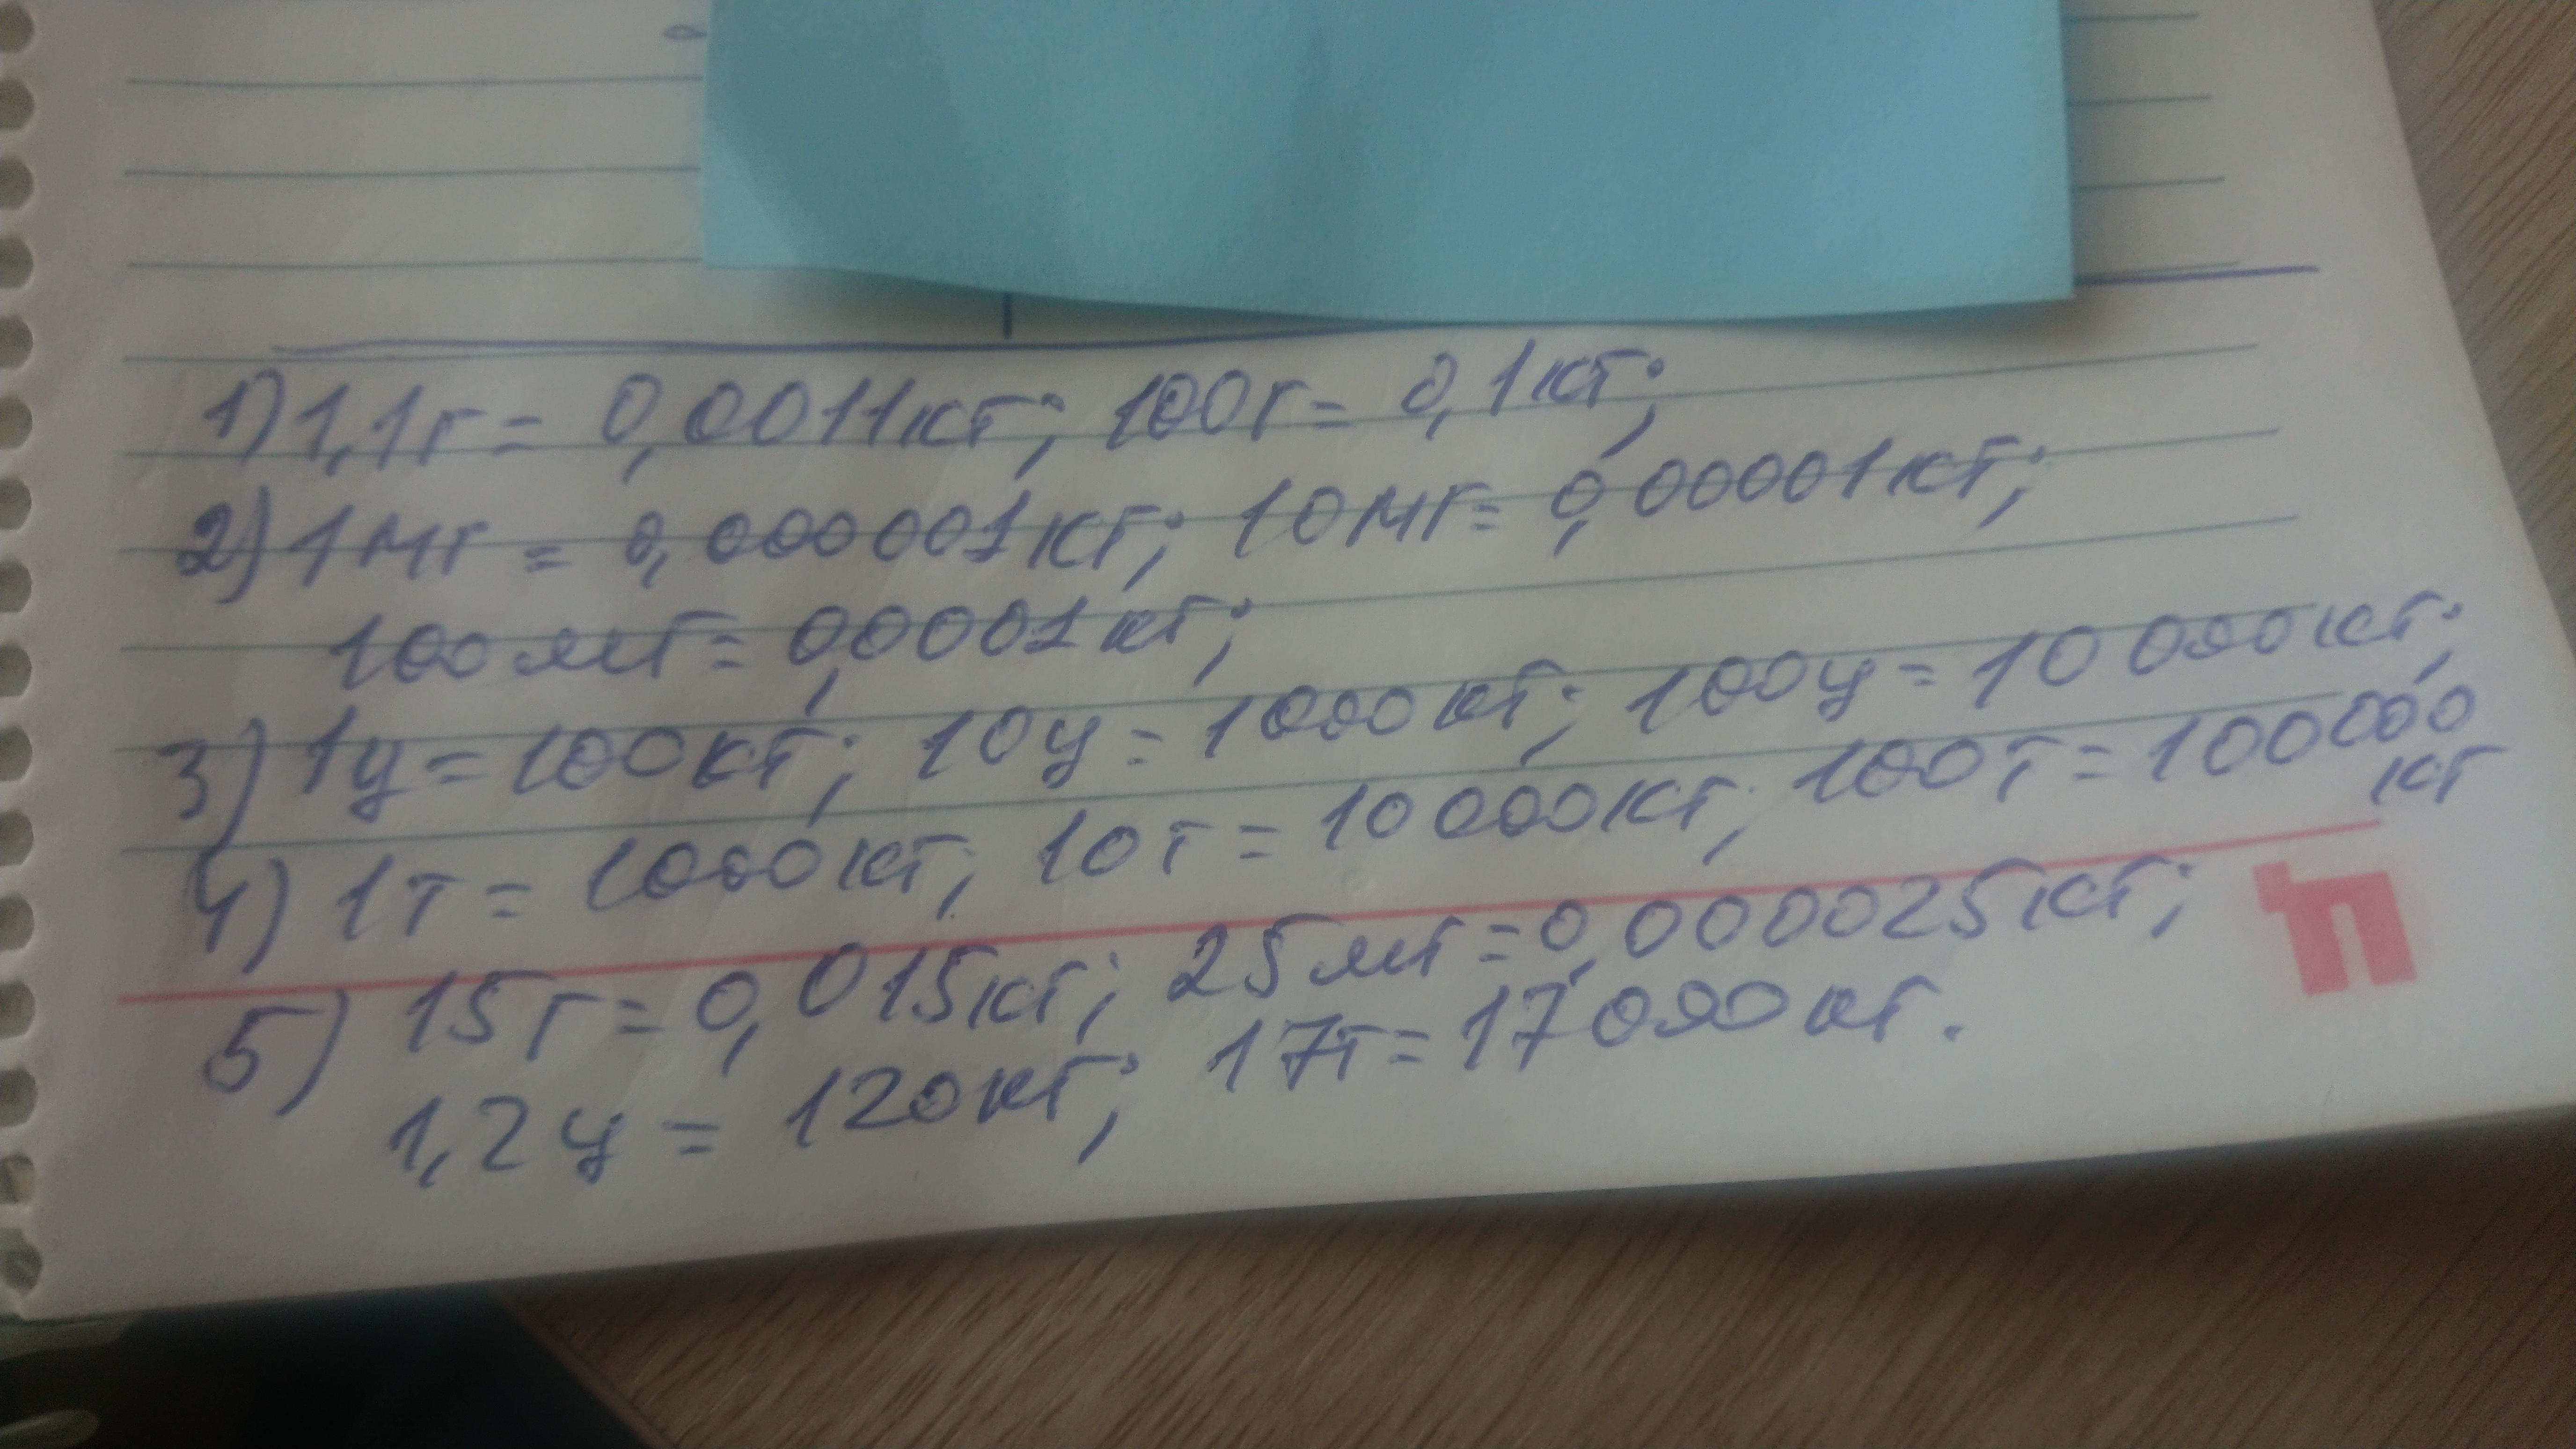 1) 1,1г = 0,0011кг; 100г = 0,1кг;
2) 1мг = 0,000001кг; 10мг = 0,00001кг;
100мг = 0,0001кг;
3) 1ц = 100кг; 10ц = 1000кг; 100ц = 10 000кг;
4) 1т = 1000кг; 10т = 10 000кг; 100т = 100 000
кг
5) 15г = 0,015кг; 25мг = 0,000025кг;
1,2ц = 120кг; 17т = 17 000кг.